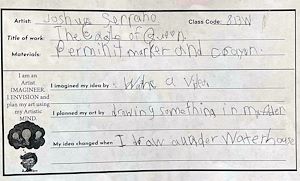 Artist: Joshua Serrano Class Code: 8BW
Title of work: The Castle of Queen.
Materials: Perminit marker and crayon.
I am an
Artist
IMAGINEER.
I ENVISION and
plan my art using
my Artistic
MIND.
I imagined my idea by: a
I planned my art by drawing something in
My idea changed when I draw a under Water house